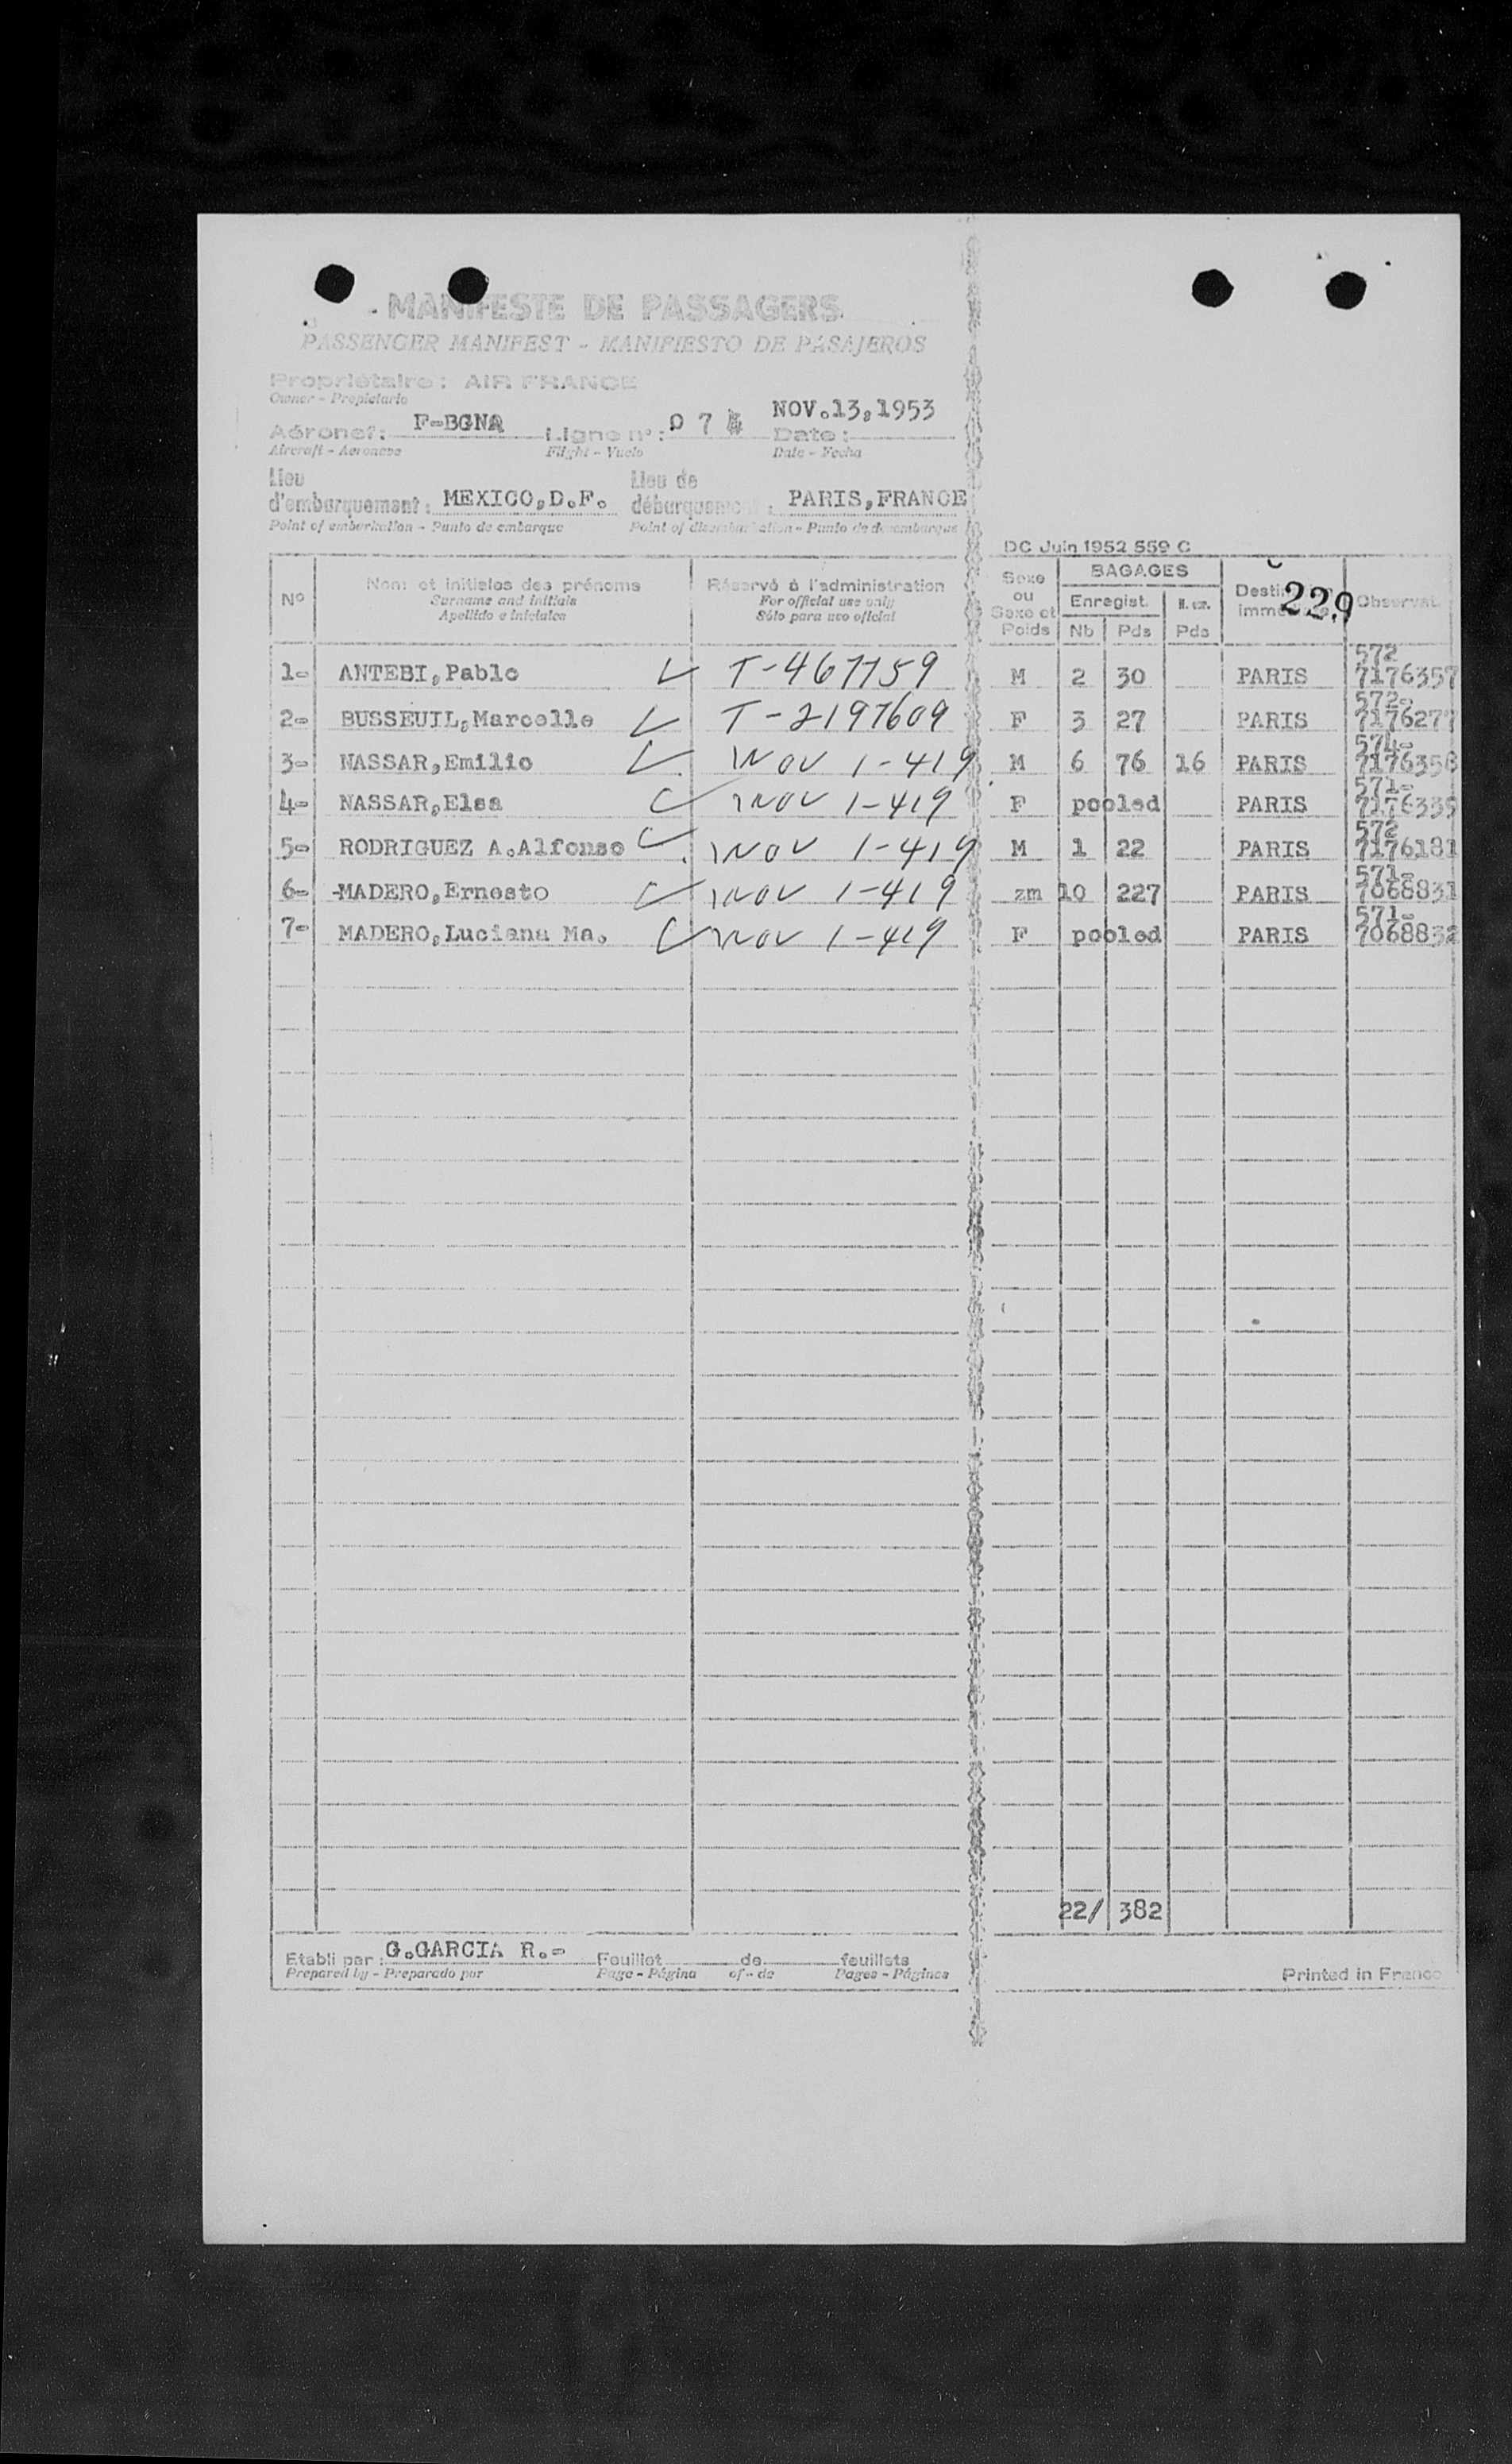 MANIFESTE DE PASSAGERS
PASSENGER MANIFEST - MANIFIESTO DE PASAJEROS
Propriétaire : AIR FRANCE
Owner - Propietario
Aéronef : F-BGNA Ligne n° : 0 7 Date : NOV.13,1953
Aircraft - Aeronave Flight - Vuelo Date - Fecha
Lieu d'embarquement : MEXICO,D.F. Lieu de débarquement : PARIS,FRANCE
Point of embarkation - Punto de embarque Point of disembarkation - Punto de desembarque
DC Juin 1952 559 C
229
N° Nom et initiales des prénoms Réservé à l'administration Sexe ou Sexe et Poids BAGAGES Observat.
Surname and initials For official use only Enregist.
Apellido e iniciales Sólo para uso oficial Nb Pds Pds
1- ANTEBI,Pablo T-467759 M 2 30 PARIS 572 7176357
2- BUSSEUIL,Marcelle T-2197609 F 3 27 PARIS 572- 7176277
3- NASSAR,Emilio NOV 1-419 M 6 76 16 PARIS 574- 7176358
4- NASSAR,Elsa NOV 1-419 F pooled PARIS 571- 7176339
5- RODRIGUEZ A.Alfonso NOV 1-419 M 1 22 PARIS 572 7176181
6- -MADERO,Ernesto NOV 1-419 zm 10 227 PARIS 571- 7068831
7- MADERO,Luciana Ma. NOV 1-419 F pooled PARIS 571- 7068832
22/ 382
Etabli par : G.GARCIA R.- Feuillet de feuillets
Prepared by - Preparado por Page - Página of - de Pages - Páginas
Printed in France